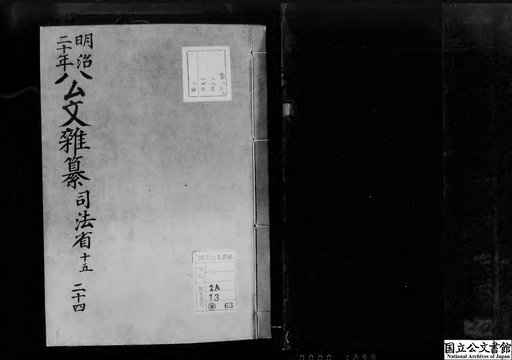 明治
二十年
公文雑纂 司法省 十五 二十四
国立公文書館
2A
13
63
国立公文書館
National Archives of Japan